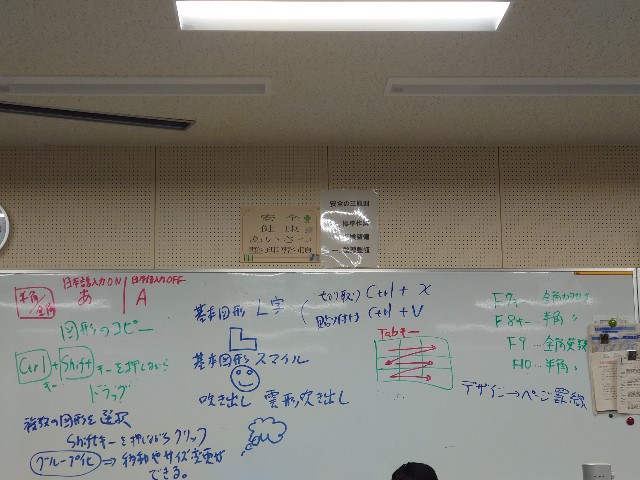 安全
健康
あいさつ
整理整頓
安全の三原則
一、標準作業
一、整理整頓
半角/全角
日本語入力ON
あ
日本語入力OFF
A
図形のコピー
Ctrl + Shift キーを押しながら
キー
ドラッグ
複数の図形を選択
Shiftキーを押しながらクリック
グループ化 ⇒ 移動やサイズ変更が
できる。
基本図形 L字
基本図形 スマイル
吹き出し 雲形吹き出し
切り取り Ctrl + X
貼り付け Ctrl + V
Tabキー
F7キー 全角カタカナ
F8キー 半角 〃
F9 … 全角英数
F10 … 半角 〃
デザイン→ページ罫線